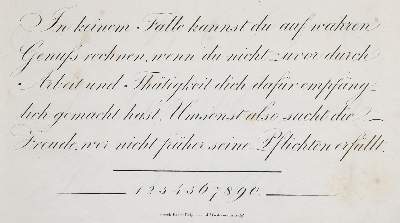 In keinem Falle kannst du auf wahren
Genuß rechnen, wenn du nicht zuvor durch
Arbeit und Thätigkeit dich dafür empfäng-
lich gemacht hast. Umsonst also sucht die
Freude, wer nicht früher seine Pflichten erfüllt.
1 2 3 4 5 6 7 8 9 0.